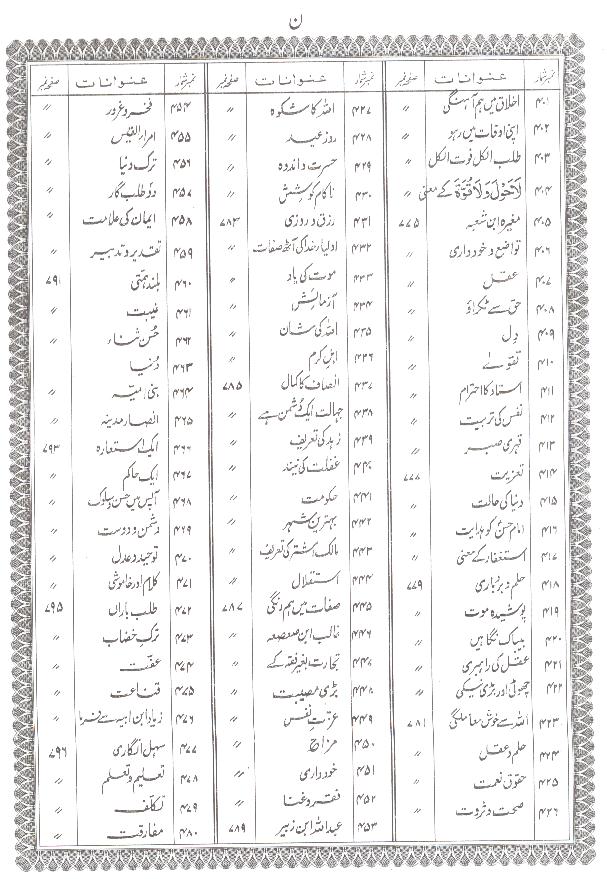 ن
نمبر شمار عنوانات صفحہ نمبر
۴۰۱ اخلاق میں ہم آہنگی 〃
۴۰۲ اپنی اوقات میں رہو 〃
۴۰۳ طلب الکل فوت الکل 〃
۴۰۴ لَاحَوْلَ وَلَا قُوَّةَ کے معنی 〃
۴۰۵ مغیرہ ابن شعبہ ۷۷۵
۴۰۶ تواضع و خودداری 〃
۴۰۷ عقل 〃
۴۰۸ حق سے ٹکراؤ 〃
۴۰۹ دل 〃
۴۱۰ تقویٰ 〃
۴۱۱ استاد کا احترام 〃
۴۱۲ نفس کی تربیت 〃
۴۱۳ قہری صبر 〃
۴۱۴ تعزیت ۷۷۷
۴۱۵ دنیا کی حالت 〃
۴۱۶ امام حسنؑ کو ہدایت 〃
۴۱۷ استغفار کے معنی 〃
۴۱۸ حلم و بردباری ۷۷۹
۴۱۹ پوشیدہ موت 〃
۴۲۰ بیباک نگاہیں 〃
۴۲۱ عقل کی راہبری 〃
۴۲۲ چھوٹی اور بڑی نیکی 〃
۴۲۳ اللہ سے خوش معاملگی ۷۸۱
۴۲۴ حلم و عقل 〃
۴۲۵ حقوق نعمت 〃
۴۲۶ صحت و ثروت 〃
نمبر شمار عنوانات صفحہ نمبر
۴۲۷ اللہ کا شکوہ 〃
۴۲۸ روز عید 〃
۴۲۹ حسرت و اندوہ 〃
۴۳۰ ناکام کوشش 〃
۴۳۱ رزق و روزی ۷۸۳
۴۳۲ اولیاء خدا کی آٹھ صفات 〃
۴۳۳ موت کی یاد 〃
۴۳۴ آزمائش 〃
۴۳۵ اللہ کی شان 〃
۴۳۶ اہل کرم 〃
۴۳۷ انصاف کا کمال ۷۸۵
۴۳۸ جہالت ایک دشمن ہے 〃
۴۳۹ زہد کی تعریف 〃
۴۴۰ غفلت کی نیند 〃
۴۴۱ حکومت 〃
۴۴۲ بہترین شہر 〃
۴۴۳ مالک اشتر کی تعریف 〃
۴۴۴ استقلال 〃
۴۴۵ صفات میں ہم رنگی ۷۸۷
۴۴۶ غالب ابن صعصعہ 〃
۴۴۷ تجارت بغیر فقہ کے 〃
۴۴۸ بڑی مصیبت 〃
۴۴۹ عزت نفس 〃
۴۵۰ مزاح 〃
۴۵۱ خودداری 〃
۴۵۲ فقر و غنا 〃
۴۵۳ عبداللہ ابن زبیر ۷۸۹
نمبر شمار عنوانات صفحہ نمبر
۴۵۴ فخر و غرور 〃
۴۵۵ امراء القیس 〃
۴۵۶ ترک دنیا 〃
۴۵۷ دو طلب گار 〃
۴۵۸ ایمان کی علامت 〃
۴۵۹ تقدیر و تدبیر 〃
۴۶۰ بلند ہمتی ۷۹۱
۴۶۱ غیبت 〃
۴۶۲ حُسن ثناء 〃
۴۶۳ دُنیا 〃
۴۶۴ بنی امیہ 〃
۴۶۵ انصار مدینہ 〃
۴۶۶ ایک استعارہ ۷۹۳
۴۶۷ ایک حاکم 〃
۴۶۸ آپس میں حسن سلوک 〃
۴۶۹ دشمن و دوست 〃
۴۷۰ توحید و عدل 〃
۴۷۱ کلام اور خاموشی 〃
۴۷۲ طلب باراں ۷۹۵
۴۷۳ ترک خضاب 〃
۴۷۴ عفت 〃
۴۷۵ قناعت 〃
۴۷۶ زیاد ابن ابیہ سے فرما 〃
۴۷۷ سہل انگاری ۷۹۶
۴۷۸ تعلیم و تعلم 〃
۴۷۹ تکلف 〃
۴۸۰ مفارقت 〃